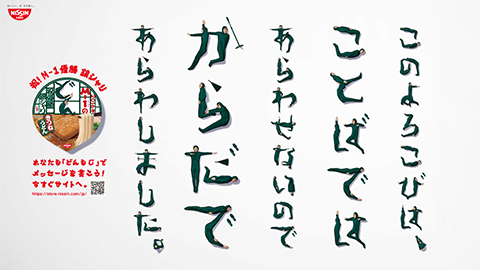 NISSIN
このよろこびは、
ことばでは
あらわせないので
からだで
あらわしました。
祝!M-1優勝 銀シャリ
どん
あなたも「どんもじ」で
メッセージを書こう!
今すぐサイトへ。
https://store.nissin.com/jp/